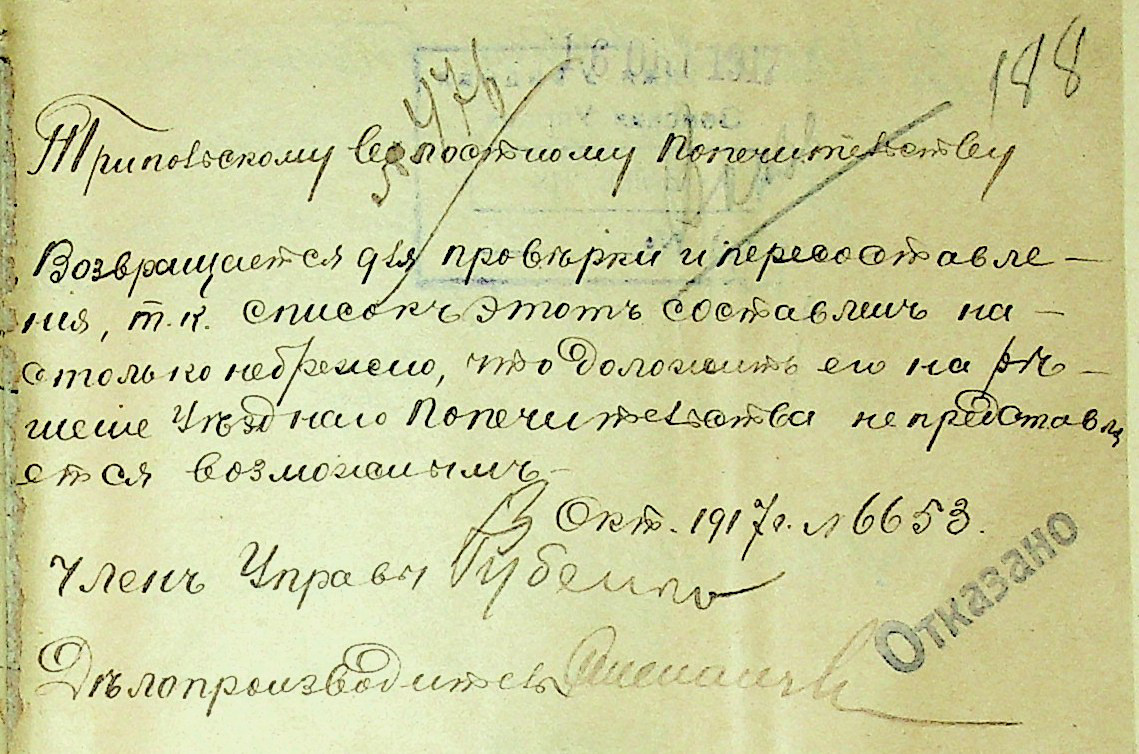 188
976
Трипольскому волостному Попечительству
Возвращается для провѣрки и пересоставле-
ния, т.к. списокъ этотъ составленъ на-
столько небрежно, что доложить его на рѣ-
шение Уѣзднаго Попечительства не представля
ется возможнымъ
3 Окт. 1917 г. № 6653.
Членъ Управы Губенко
Отказано
Дѣлопроизводитель